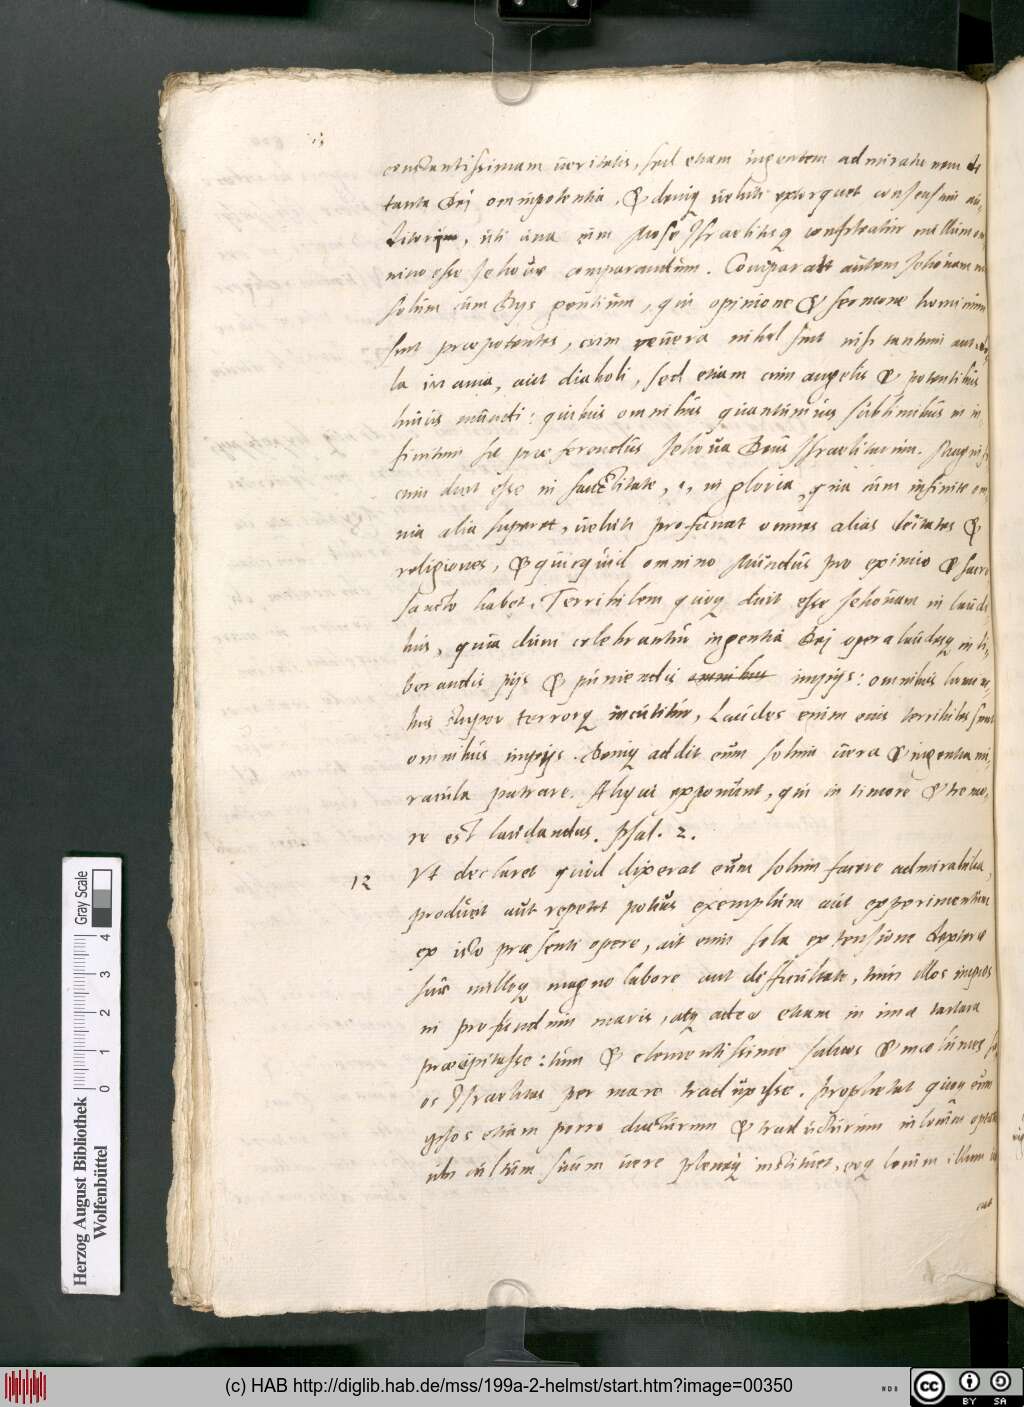 constantissimam ueritatis, sed etiam ingentem admirationem de
tanta Dej omnipotentia, & deniq ueluti extorquet consensum au-
ditorum, uti una cum Mose Israelitisq confiteantur nullum om
nino esse Jehouae comparandum. Comparat autem Jehouam no
solum cum Dijs gentium, qui opinione & sermone hominum
sunt praepotentes, cum reuera nihil sint nisi tantum aut
la inania, aut diaboli, sed etiam cum angelis & potentibus
huius mundi: quibus omnibus quantumuis sublimibus in in
finitum sit praeferendus Jehoua Deus Israelitarum. Magnifi
cum dicit esse in sanctitate, in gloria, quia cum infinite om
nia alia superet, ueluti profanat omnes alias deitates &
religiones, & quicquid omnino Mundus pro eximio & sacro
sancto habet. Terribilem quoq dicit esse Jehouam in laudi
bus, quia dum celebrantur ingentia Dej opera laudesq in li-
berandis pijs & puniendis omnibus impijs: omnibus
bus stupor terrorq incutitur, Laudes enim eius terribiles sunt
omnibus impijs. Deniq addit eum solum uera & ingentia mi-
racula patrare. Aliqui exponunt, qui in timore & tremo-
re est laudandus. Psal. 2.
12 Vt declaret quod dixerat eum solum facere admirabilia,
producit aut repetit potius exemplum aut experimentum
ex isto praesenti opere, ait enim sola extensione dexterae
suae nulloq magno labore aut difficultate, tum illos impios
in profundum maris, atq adeo etiam in ima tartara
praecipitasse: tum & clementissime saluos & incolumes
os Israelitas per mare traduxisse. Prophetat quoq eum
ipsos etiam porro ducturum & traducturum in locum optatum
ubi cultum suum uere pleneq instituet, eoq locum illum
(c) HAB http://diglib.hab.de/mss/199a-2-helmst/start.htm?image=00350
Herzog August Bibliothek
Wolfenbüttel
0 1 2 3 4
Gray Scale
CC BY SA